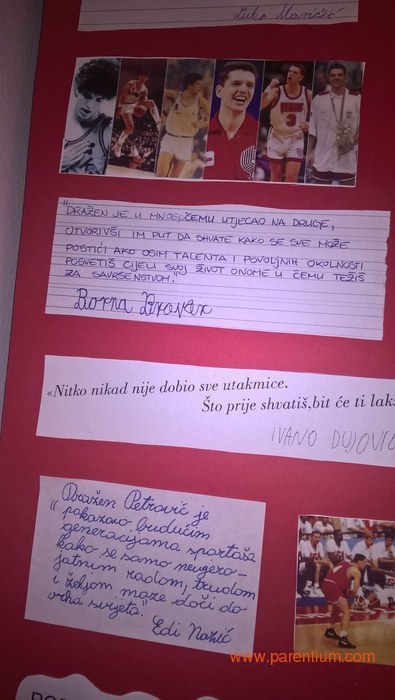 Luba Maričić
"DRAŽEN JE U MNOGOČEMU UTJECAO NA DRUGE,
OTVORIVŠI IM PUT DA SHVATE KAKO SE SVE MOŽE
POSTIĆI AKO OSIM TALENTA I POVOLJNIH OKOLNOSTI
POSVETIŠ CIJELI SVOJ ŽIVOT ONOME U ČEMU TEŽIŠ
ZA SAVRŠENSTVOM."
Borna
«Nitko nikad nije dobio sve utakmice.
Što prije shvatiš,bit će ti
IVANO DUJOVIĆ
Dražen Petrović je
"pokazao budućim
generacijama sportaša
kako se samo nevjero-
jatnim radom, trudom
i željom može doći do
vrha svijeta."
Edi Nazić
3
www.parentium.com